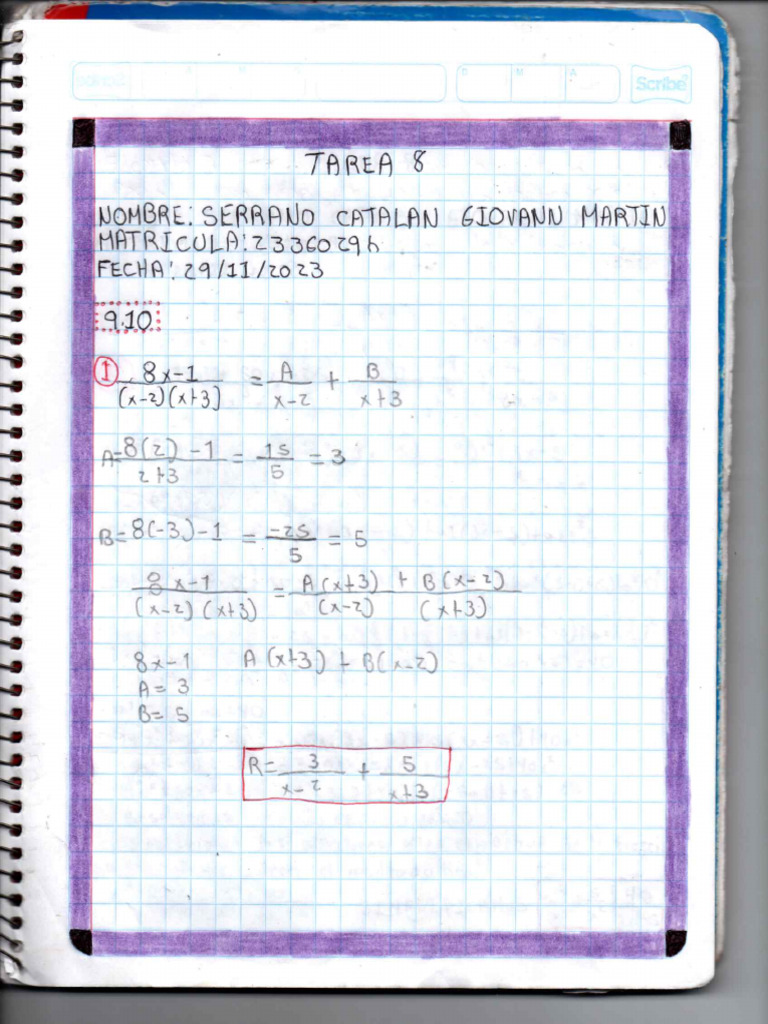 Scribe
TAREA 8
NOMBRE: SERRANO CATALAN GIOVANN MARTIN
MATRICULA: 23360296
FECHA: 29/11/2023
9.10
① 8x-1 / (x-2)(x+3) = A / x-2 + B / x+3
A= 8(2) -1 / 2+3 = 15 / 5 = 3
B= 8(-3)-1 = -25 / 5 = 5
8x-1 / (x-2)(x+3) = A(x+3) + B(x-2) / (x-2) (x+3)
8x-1 A(x+3) + B(x-2)
A= 3
B= 5
R= 3 / x-2 + 5 / x+3